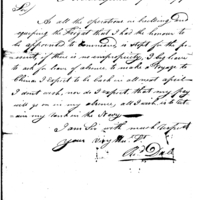 Sir
As all the operations in building and
equiping the Frigate that I had the honour to
be appointed to Command, is stopt for the pre-
sent, if there is no impropriety, I beg leave
to ask for leave of absence to make a Voyage to
China I expect to be back in all next april
I don't wish, nor do I expect that any pay
will go on in my absence, all I wish is to re-
tain my rank in the Navy
I am Sir with much respect
your very Hum St
Rd Dale